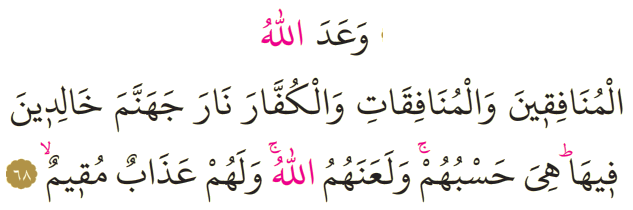 وَعَدَ اللّٰهُ
الْمُنَافِقٖينَ وَالْمُنَافِقَاتِ وَالْكُفَّارَ نَارَ جَهَنَّمَ خَالِدٖينَ
فٖيهَاؕ هِيَ حَسْبُهُمْۚ وَلَعَنَهُمُ اللّٰهُۚ وَلَهُمْ عَذَابٌ مُقٖيمٌۙ ﴿٦٨﴾